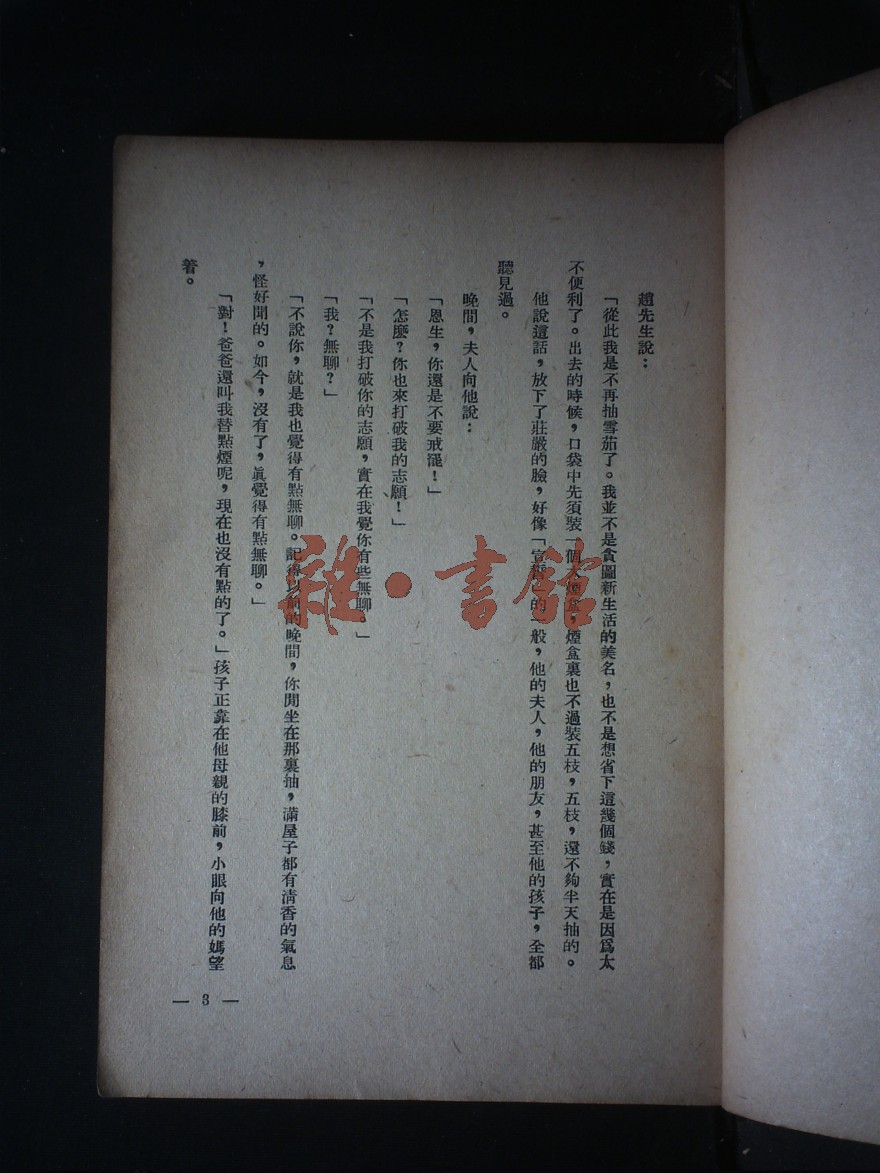 趙先生說：
「從此我是不再抽雪茄了。我並不是貪圖新生活的美名，也不是想省下這幾個錢，實在是因爲太
不便利了。出去的時候，口袋中先須裝一個大煙盒，煙盒裏也不過裝五枝，五枝，還不夠半天抽的。
他說這話，放下了莊嚴的臉，好像「宣誓」的一般，他的夫人，他的朋友，甚至他的孩子，全都
聽見過。
晚間，夫人向他說：
「恩生，你還是不要戒罷！」
「怎麼？你也來打破我的志願！」
「不是我打破你的志願，實在我覺你有些無聊。」
「我？無聊？」
「不說你，就是我也覺得有點無聊。記得以前的晚間，你閒坐在那裏抽，滿屋子都有清香的氣息
，怪好聞的。如今，沒有了，眞覺得有點無聊。」
「對！爸爸還叫我替點煙呢，現在也沒有點的了。」孩子正靠在他母親的膝前，小眼向他的媽望
着。
— 3 —
雜·書館